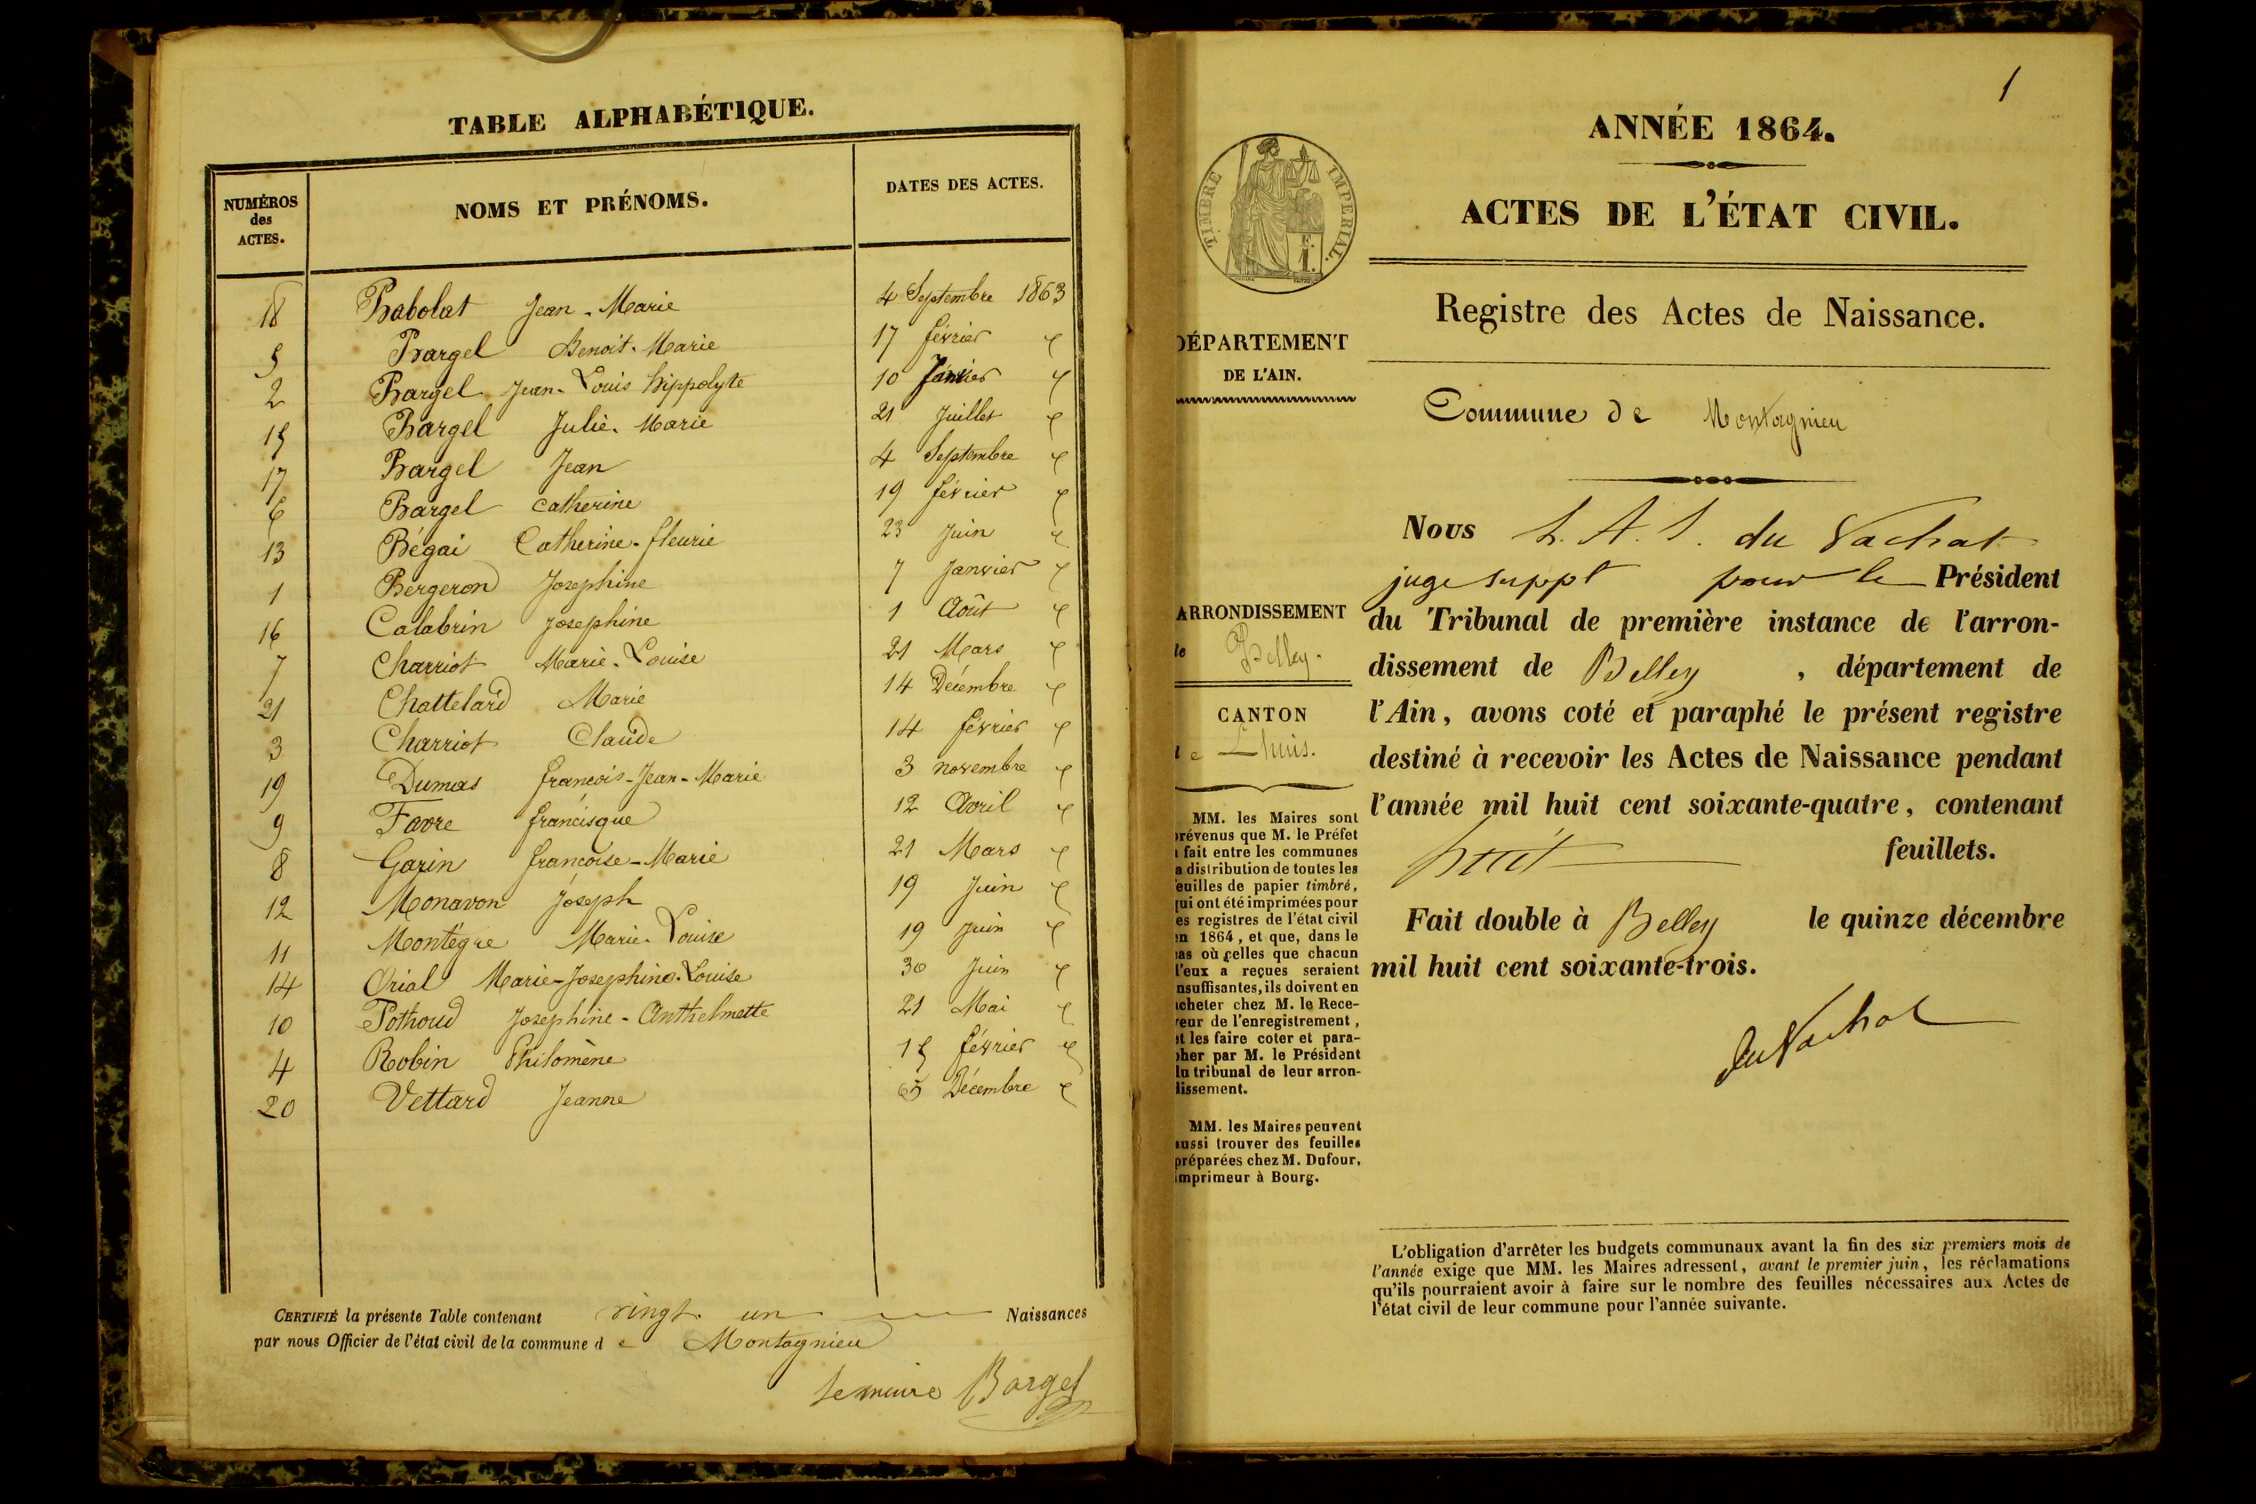 TABLE ALPHABÉTIQUE.
NUMÉROS des ACTES. NOMS ET PRÉNOMS. DATES DES ACTES.
18 Babolat Jean-Marie 4 Septembre 1863
5 Bargel Benoit-Marie 17 février "
2 Bargel Jean-Louis hippolyte 10 Janvier "
15 Bargel Julie-Marie 21 Juillet "
17 Bargel Jean 4 Septembre "
6 Bargel Catherine 19 février "
13 Bégai Catherine-fleurie 23 Juin "
1 Bergeron Josephine 7 Janvier "
16 Calabrin Josephine 1 Août "
7 Charriot Marie-Louise 21 Mars "
21 Chattelard Marie 14 Décembre "
3 Charriot Claude 14 février "
19 Dumas françois-Jean-Marie 3 novembre "
9 Favre francisque 12 Avril "
8 Garin francoise-Marie 21 Mars "
12 Monavon Joseph 19 Juin "
11 Montègre Marie-Louise 19 Juin "
14 Orial Marie-Josephine-Louise 30 Juin "
10 Pothoud Josephine-Anthelmette 21 Mai "
4 Robin Philomène 15 février "
20 Vettard Jeanne Décembre "
CERTIFIÉ la présente Table contenant vingt-un Naissances
par nous Officier de l'état civil de la commune de Montagnieu
Le maire Bargel
1
ANNÉE 1864.
TIMBRE IMPERIAL.
ACTES DE L'ÉTAT CIVIL.
Registre des Actes de Naissance.
DÉPARTEMENT
DE L'AIN.
Commune de Montagnieu
ARRONDISSEMENT
de Belley.
CANTON
de Lhuis.
MM. les Maires sont
prévenus que M. le Préfet
a fait entre les communes
la distribution de toutes les
feuilles de papier timbré,
qui ont été imprimées pour
les registres de l'état civil
en 1864, et que, dans le
cas où celles que chacun
d'eux a reçues seraient
insuffisantes, ils doivent en
acheter chez M. le Rece-
veur de l'enregistrement,
et les faire coter et para-
pher par M. le Président
du tribunal de leur arron-
dissement.
MM. les Maires peuvent
aussi trouver des feuilles
préparées chez M. Dufour,
imprimeur à Bourg.
Nous du Vachat
juge suppt pour le Président
du Tribunal de première instance de l'arron-
dissement de Belley, département de
l'Ain, avons coté et paraphé le présent registre
destiné à recevoir les Actes de Naissance pendant
l'année mil huit cent soixante-quatre, contenant
huit feuillets.
Fait double à Belley le quinze décembre
mil huit cent soixante-trois.
du Vachat
L'obligation d'arrêter les budgets communaux avant la fin des six premiers mois de
l'année exige que MM. les Maires adressent, avant le premier juin, les réclamations
qu'ils pourraient avoir à faire sur le nombre des feuilles nécessaires aux Actes de
l'état civil de leur commune pour l'année suivante.